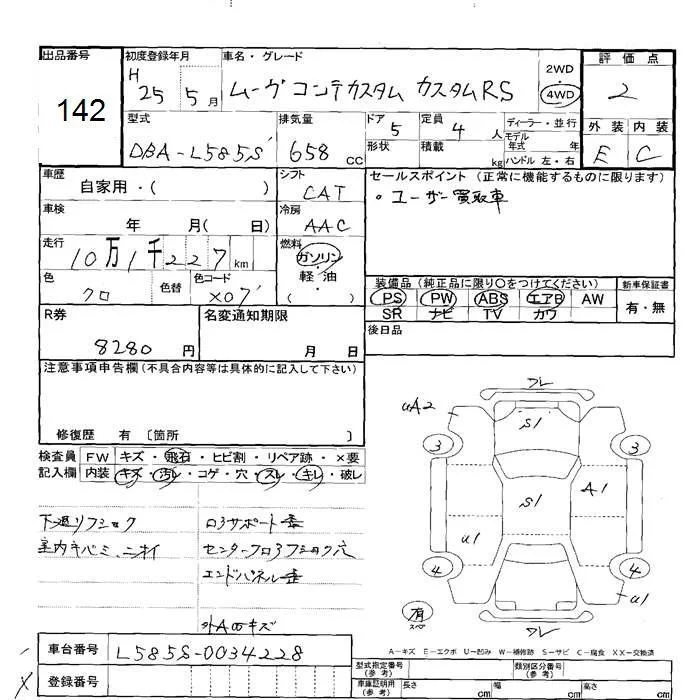 出品番号 初度登録年月 車名・グレード 2WD 評価点
142 H 25 5月 ムーヴ コンテカスタム カスタムRS 4WD 2
型式 排気量 ドア 定員 ディーラー・並行 外装 内装
DBA-L585S 658 CC 5 4人 モデル年式 年 E C
形状 積載 kg ハンドル 左・右
車歴 シフト セールスポイント (正常に機能するものに限ります)
自家用・( ) CAT ・ユーザー買取車
車検 冷房
年 月( 日) AAC
走行 燃料
10万1千227km ガソリン・軽油
色 色替 色コード ( )
クロ X07
装備品 (純正品に限り○をつけてください) 新車保証書
PS PW ABS エアB AW 有・無
SR ナビ TV カワ
R券 名変通知期限 後日品
8280円 月 日
注意事項申告欄 (不具合内容等は具体的に記入して下さい)
修復歴 有 〔箇所 〕
検査員 FW キズ・飛石・ヒビ割・リペア跡・×要
記入欄 内装 キズ・汚レ・コゲ・穴・スレ・キレ・破レ
下廻リフショク
室内キバミ、ニオイ
センターフロアフショク穴
エンドパネル歪
外A凹キズ
フレ
uA2
S1
3 3
S1 A1
u1
4 4
u1
有
スペア
フレ
A-キズ E-エクボ U-凹み W-補修跡 S-サビ C-腐食 XX-交換済
車台番号 L585S-0034228
登録番号
型式指定番号(参考) 類別区分番号(参考)
車庫証明用(参考) 長さ cm 幅 cm 高さ cm